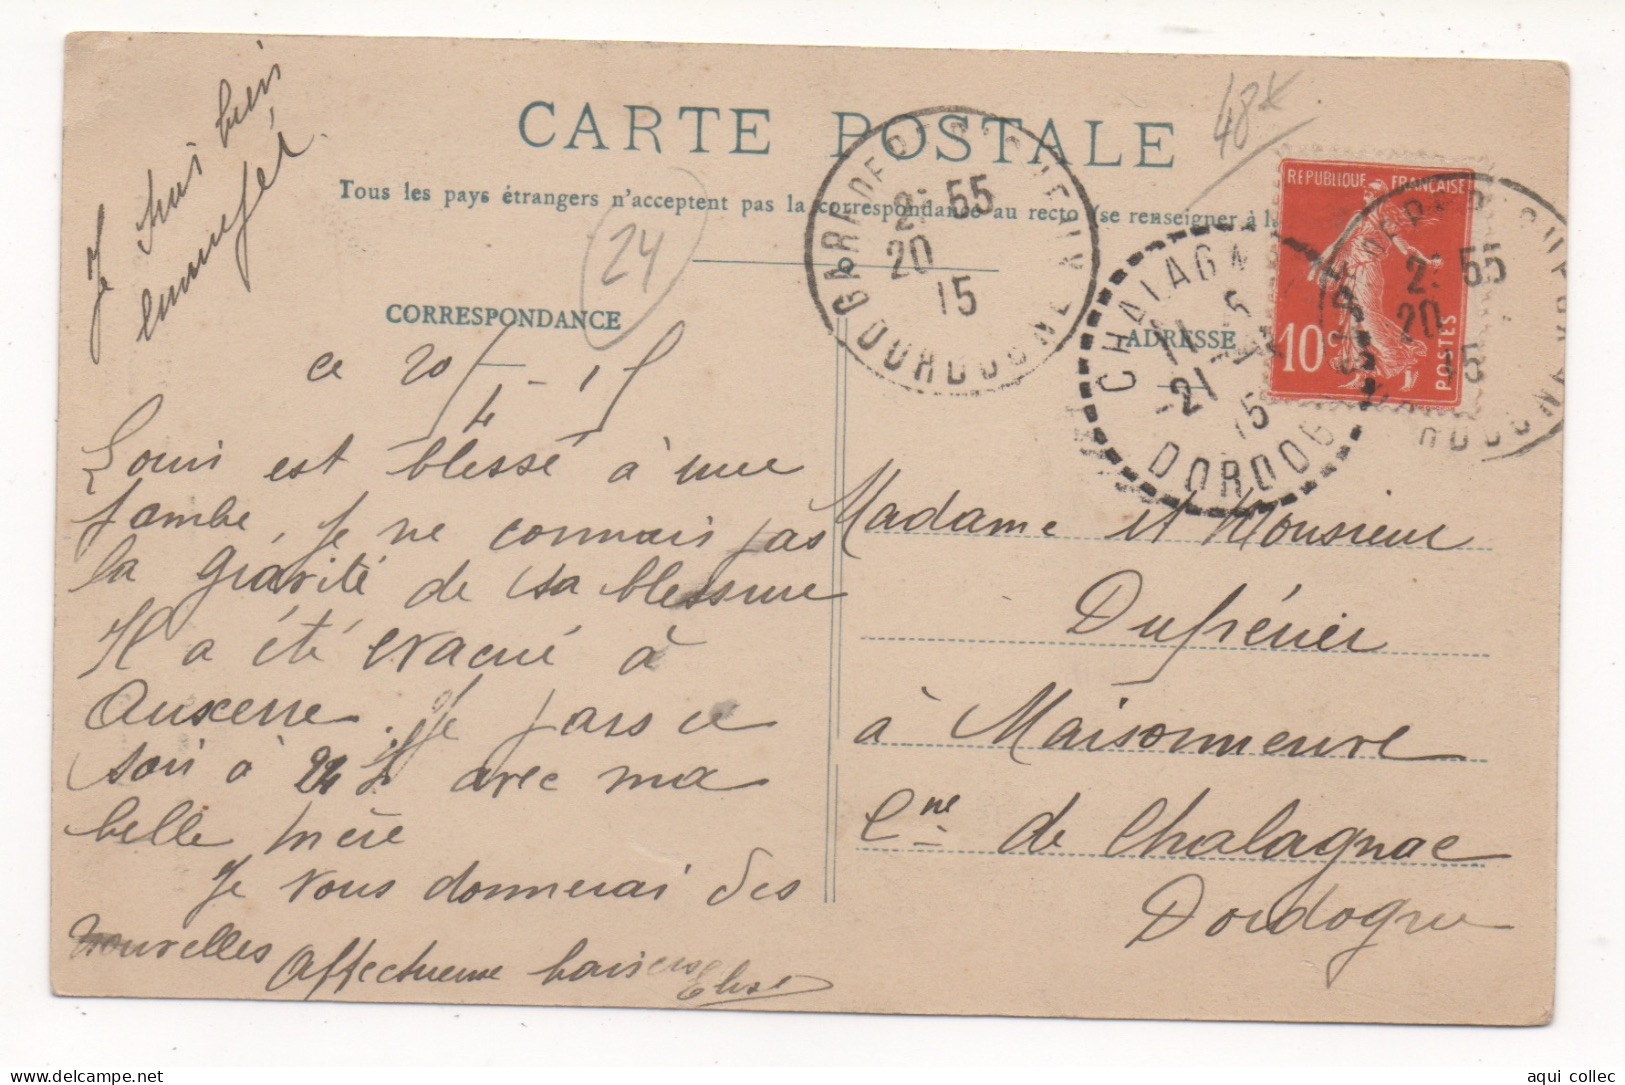 CARTE POSTALE
Tous les pays étrangers n'acceptent pas la correspondance au recto (se renseigner à la
CORRESPONDANCE
ADRESSE
24
48
RÉPUBLIQUE FRANÇAISE
10
POSTES
GARE DE
2: 55
20
15
DORDOGNE
CHALAGNAC
21
15
DORDOGNE
2: 55
20
15
DORDOGNE
Je suis bien
ennuyée
ce 20/4-15
Louis est blessé à une
jambe, je ne connais pas
la gravité de sa blessure
Il a été evacué à
Auxerre. Je pars ce
soir à avec ma
belle mère
Je vous donnerai des
nouvelles Affectueux baisers
Elise
Madame et Monsieur
Dufrénier
à Maisonneuve
Cne de Chalagnac
Dordogne
www.delcampe.net
aqui collec